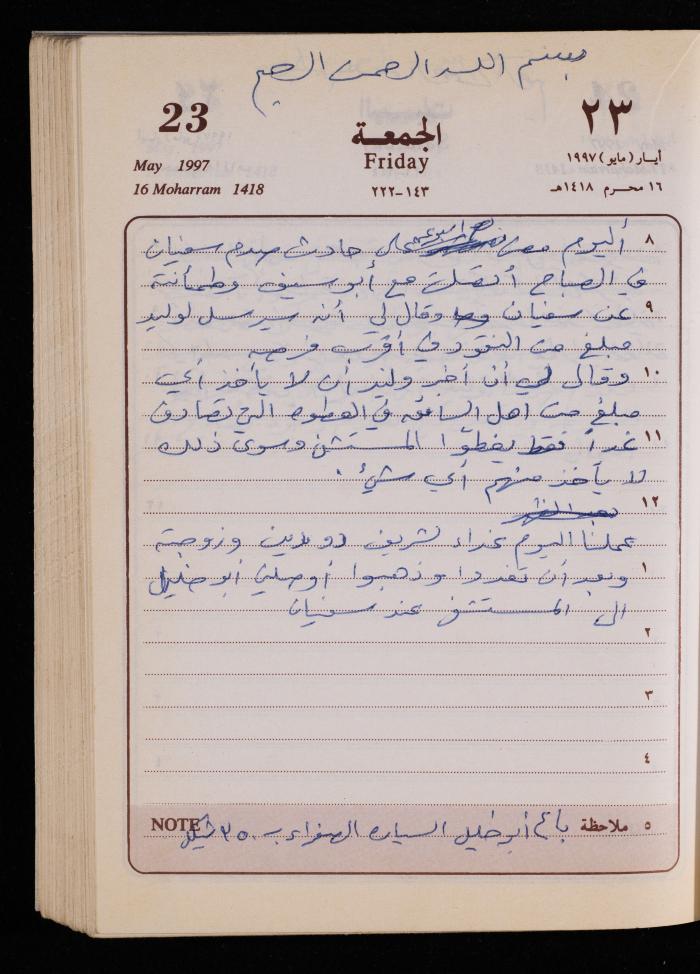 بسم الله الرحمن الرحيم
23
٢٣
الجمعة
Friday
May 1997
أيار (مايو) ١٩٩٧
16 Moharram 1418
١٤٣-٢٢٢
١٦ محرم ١٤١٨هـ
٨ أليوم مضى اسبوع على حادث صدم سفيان
في الصباح أتصلت مع أبو سيف وطمأنته
٩ عن سفيان وقال لي أنه سيرسل لوليد
مبلغ من النقود في أقرب فرصه
١٠ وقال لي أن أخبر وليد أن لا يأخذ أي
مبلغ من اهل السائق في العطوه التي تصادف
١١ غداً فقط يغطوا المستشفى وسوى ذلك
لا يأخذ منهم أي شيء.
١٢ بعد الظهر
عملنا اليوم غداء لشريف وزوجته
١ وبعد أن تغدوا وذهبوا أوصلني أبو خليل
الى المستشفى عند سفيان
٢
٣
٤
٥ ملاحظة باع أبو خليل السياره الصفراء ب ٣٥٠٠ شيكل NOTE